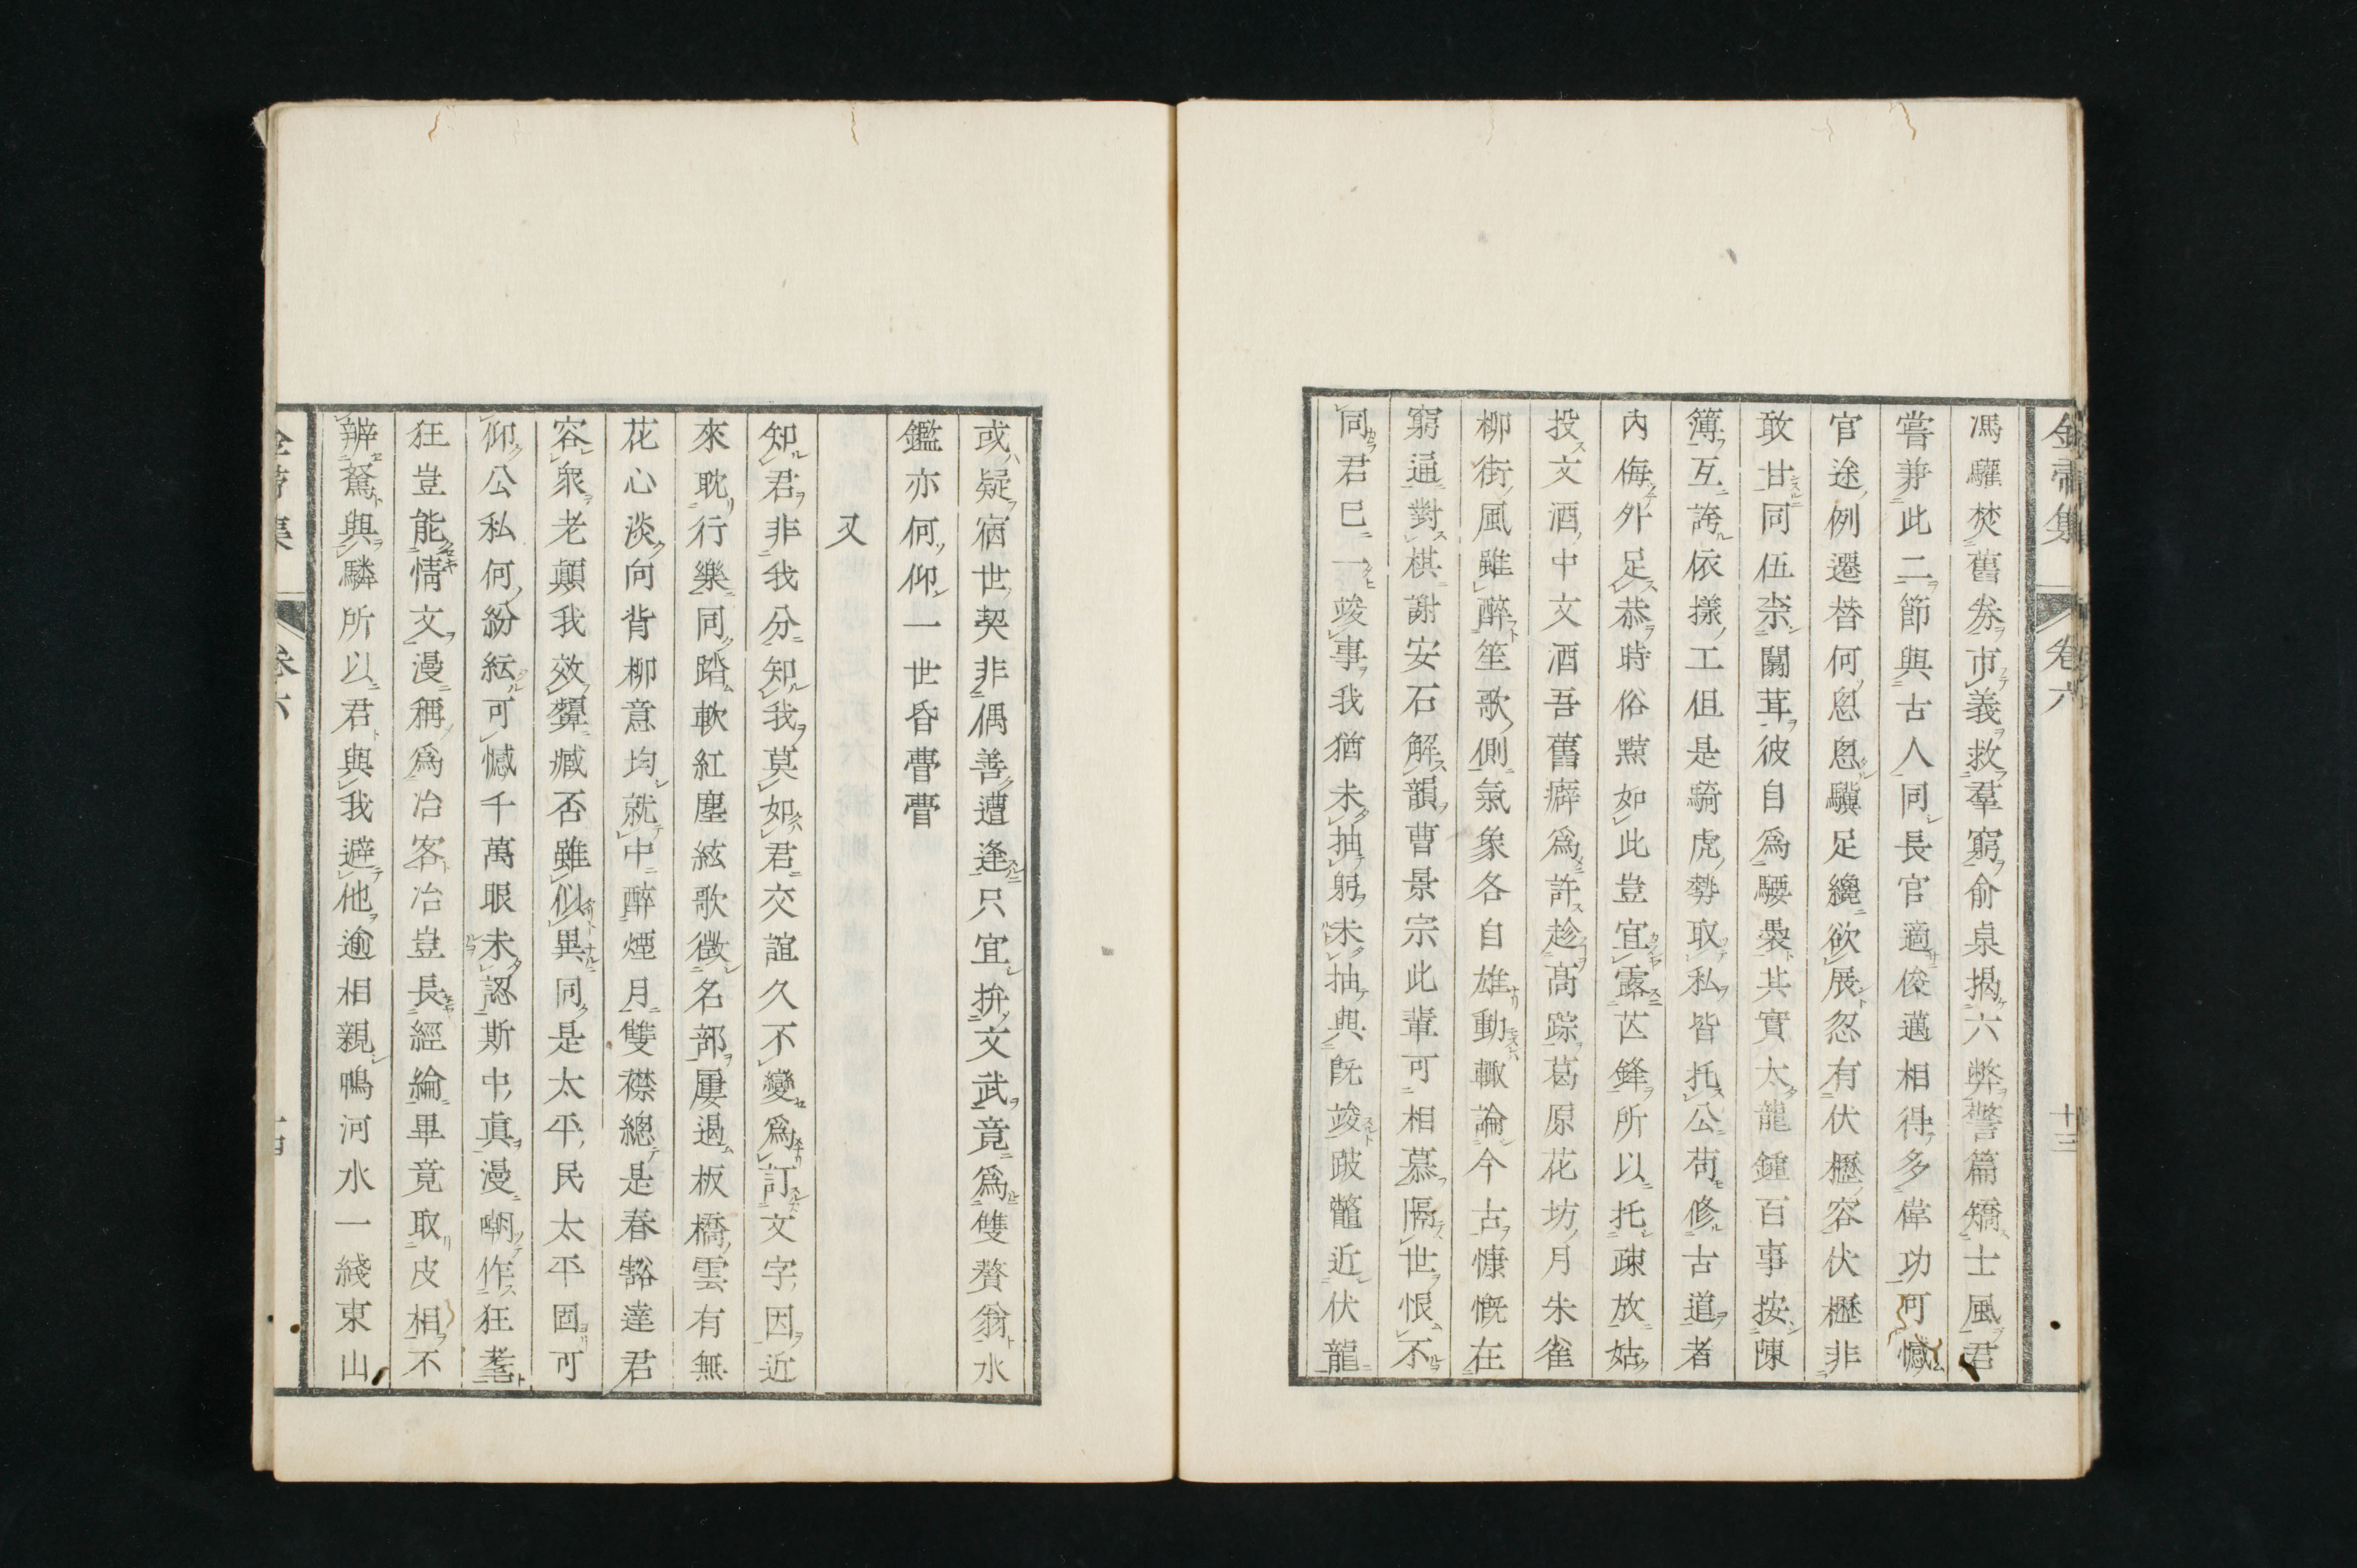 金帚集 卷六 十三
馮驩焚舊券市義救羣窮俞㮚揭六弊警篇矯士風君
嘗兼此二節與古人同長官適俊邁相得多偉功可憾
官途例遷替何怱怱驥足纔欲展忽有伏櫪容伏櫪非
敢甘同伍柰闒茸彼自爲騕褭其實太龍鍾百事按陳
簿互誇依㨾工但是騎虎勢取私皆托公苟修古道者
內侮外足恭時俗㸃如此豈宜露芒鋒所以托疎放姑
投文酒中文酒吾舊癖爲許趁高踪葛原花坊月朱雀
柳街風雖醉笙歌側氣象各自雄動輙論今古慷慨在
窮通對棋謝安石解韻曹景宗此輩可相慕隔世恨不
同君已一竣事我猶未抽躬未抽與旣竣跛鼈近伏龍
或疑宿世契非偶善遭逢只宜拚文武竟爲雙贅翁水
鑑亦何仰一世昏瞢瞢
又
知君非我分知我莫如君交誼久不變爲訂文字因近
來耽行樂同踏軟紅塵絃歌徵名部屢過板橋雲有無
花心淡向背柳意均就中醉煙月雙襟總是春豁達君
容衆老顚我效顰臧否雖似異同是太平民太平固可
仰公私何紛紜可憾千萬眼未認斯中眞漫嘲作狂耄
狂豈能情文漫稱爲冶客冶豈長經綸畢竟取皮相不
辨駑與驎所以君與我避他逾相親鴨河水一綫東山
卷六